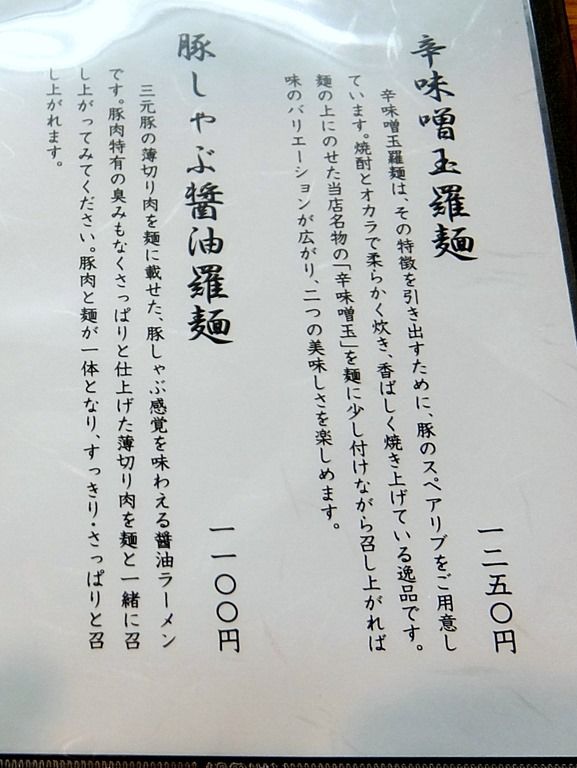 辛味噌玉羅麺
一二五〇円
辛味噌玉羅麺は、その特徴を引き出すために、豚のスペアリブをご用意し
ています。焼酎とオカラで柔らかく炊き、香ばしく焼き上げている逸品です。
麺の上にのせた当店名物の「辛味噌玉」を麺に少し付けながら召し上がれば
味のバリエーションが広がり、二つの美味しさを楽しめます。
豚しゃぶ醤油羅麺
一一〇〇円
三元豚の薄切り肉を麺に載せた、豚しゃぶ感覚を味わえる醤油ラーメン
です。豚肉特有の臭みもなくさっぱりと仕上げた薄切り肉を麺と一緒に召
し上がってみてください。豚肉と麺が一体となり、すっきり・さっぱりと召
し上がれます。